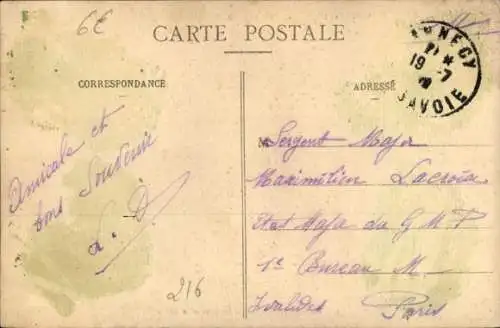 6€
CARTE POSTALE
CORRESPONDANCE
ADRESSÉ
ANNECY
19 -7
SAVOIE
Amicale et
bons Souvenir
L. D
216
M Sergent Major
Maximilien Lacroix
Etat Major du G M P
1e Bureau M
Invalides Paris